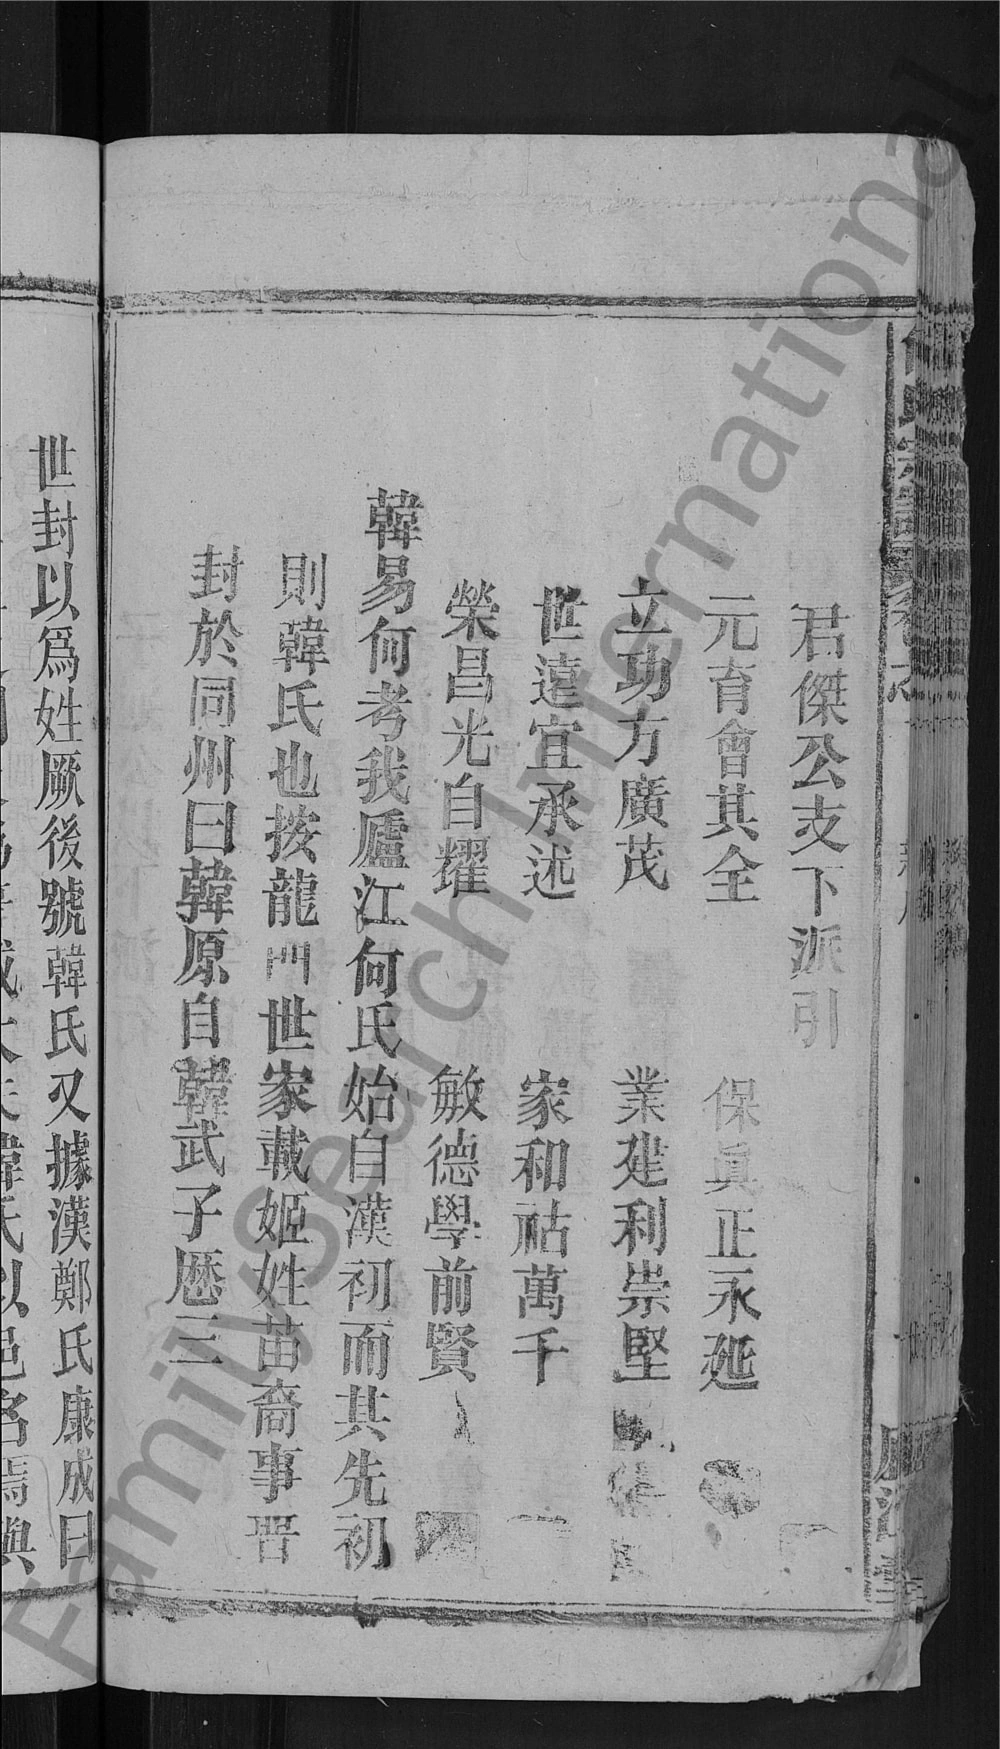 君傑公支下派引
元育會其全　保眞正永延
立功方廣茂　業建利崇堅
世遠宜承述　家和祜萬千
榮昌光自耀　敏德學前賢
韓易何考我廬江何氏始自漢初而其先初
則韓氏也按龍門世家載姬姓苗裔事晋
封於同州曰韓原自韓武子歷三
世封以爲姓厥後號韓氏又據漢鄭氏康成曰
韓氏以邑名焉與
FamilySearch International